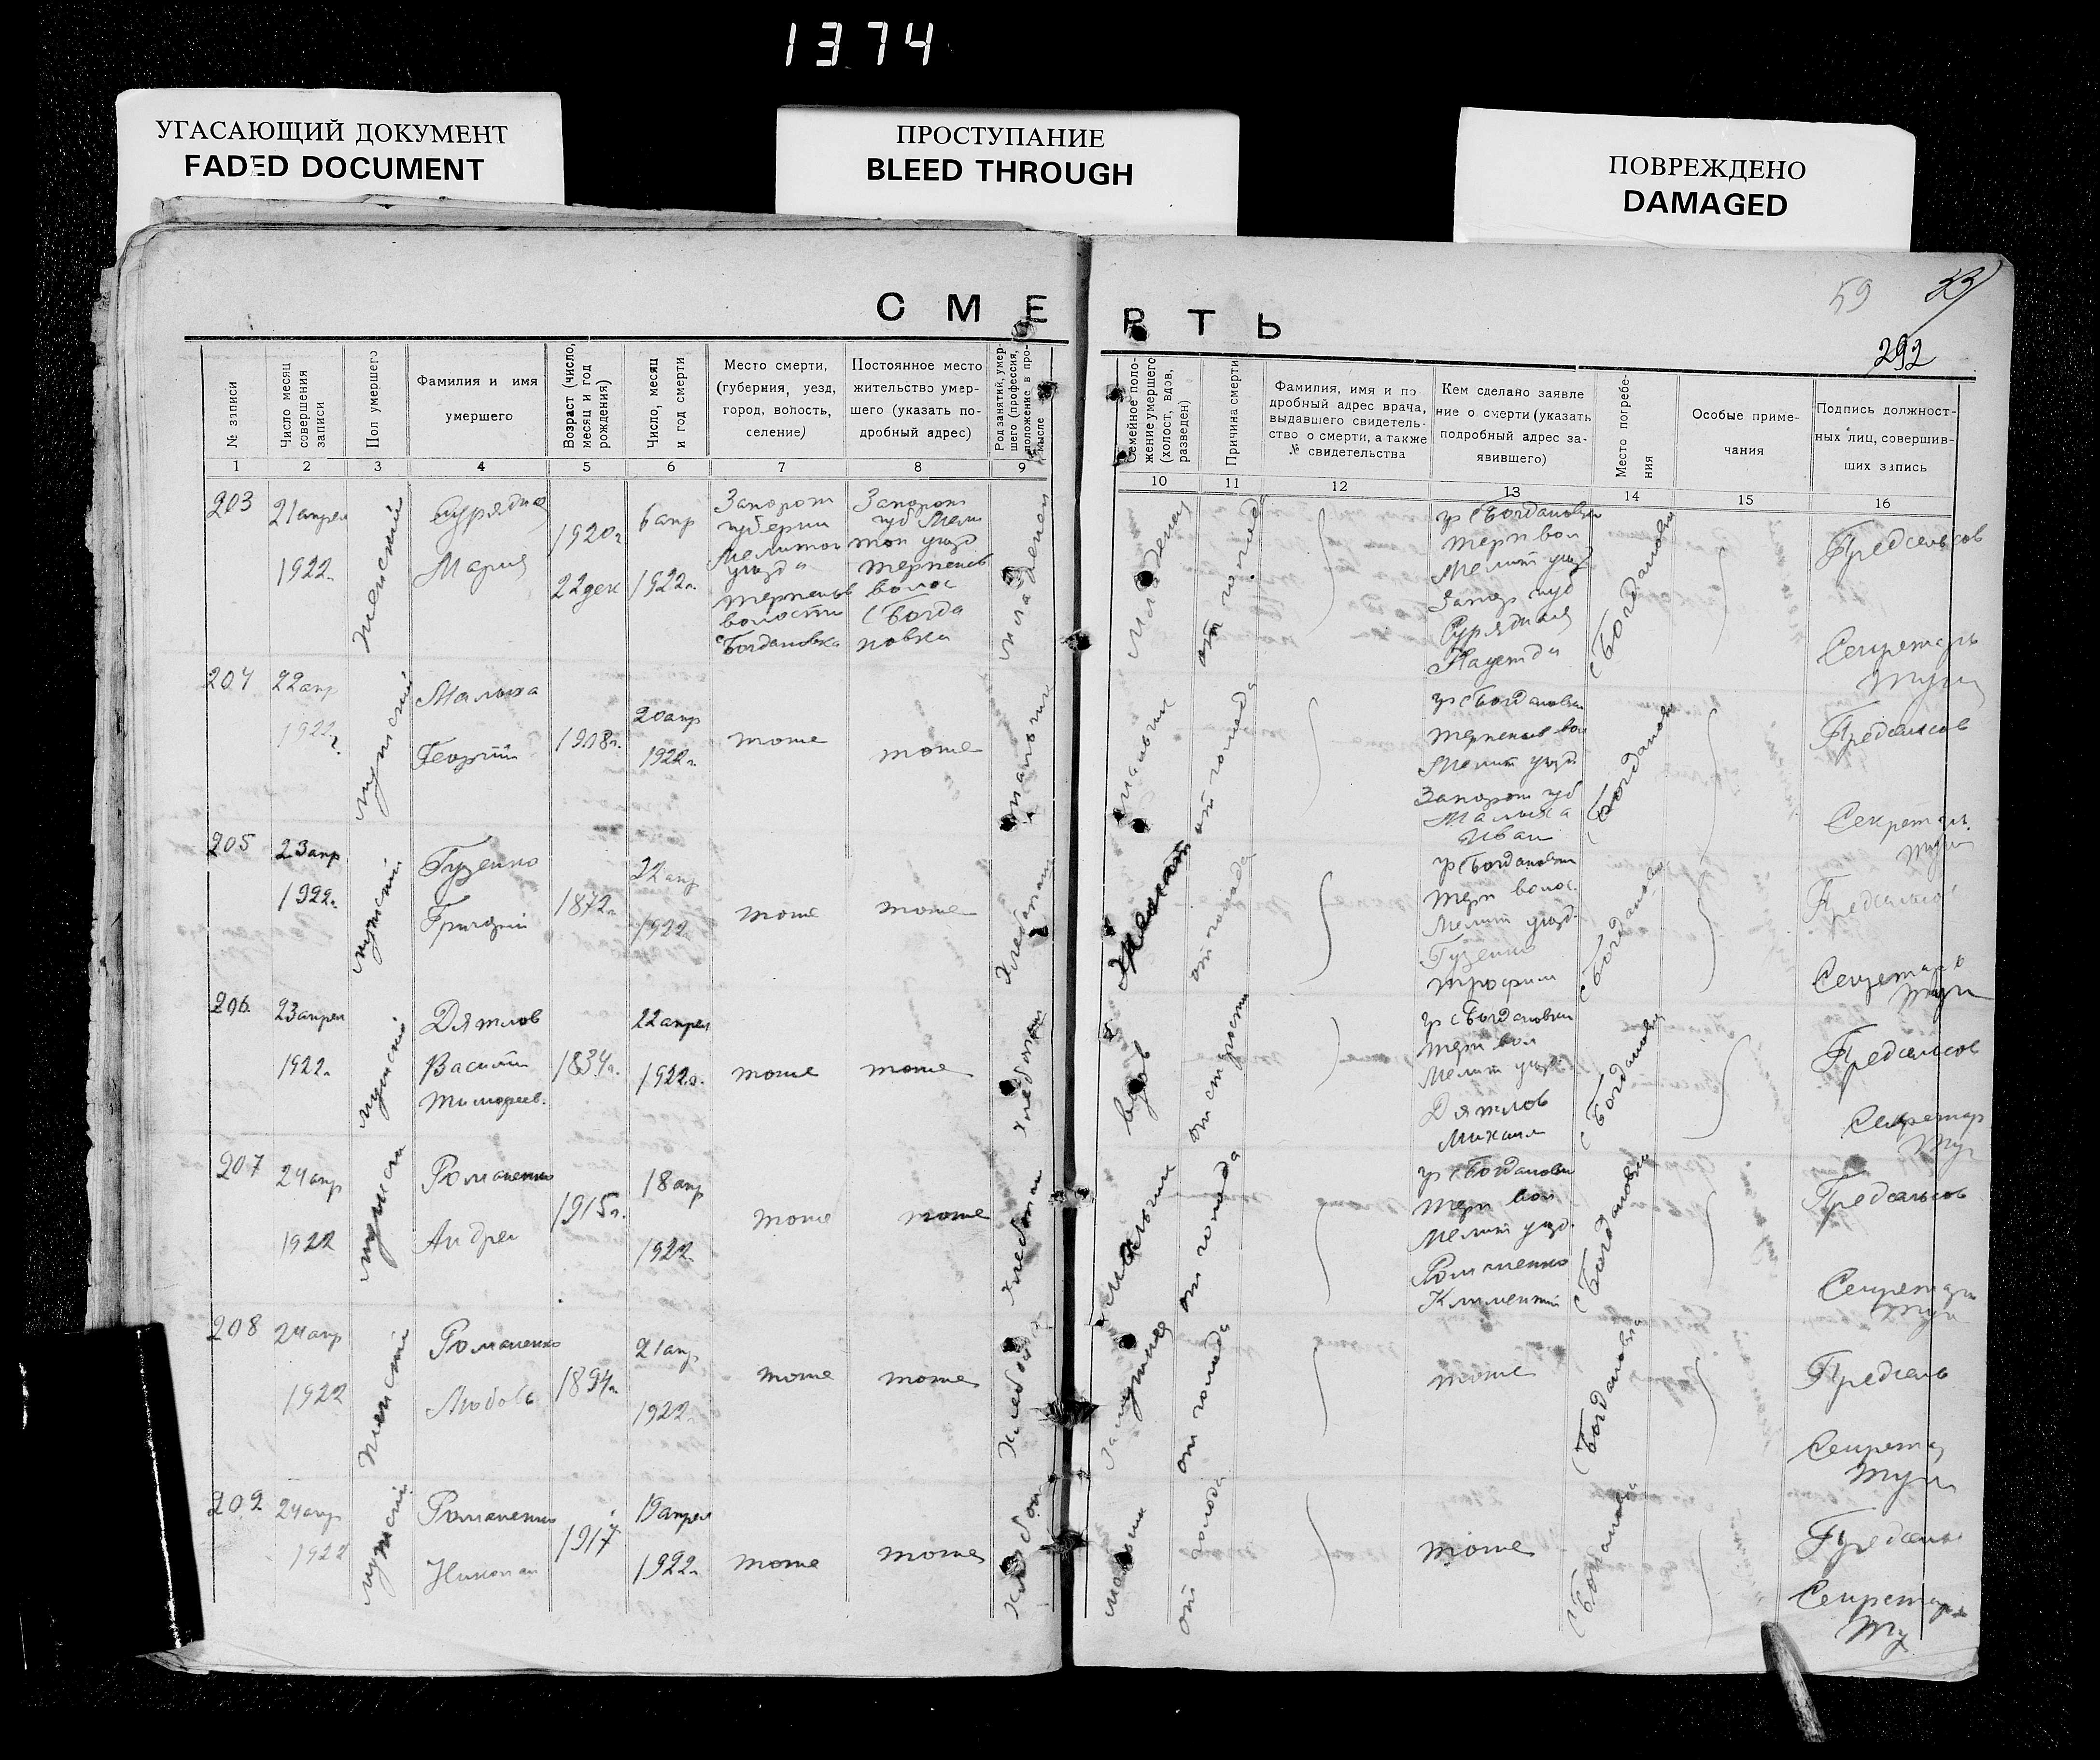 1374
УГАСАЮЩИЙ ДОКУМЕНТ
FADED DOCUMENT
ПРОСТУПАНИЕ
BLEED THROUGH
ПОВРЕЖДЕНО
DAMAGED
59
292
СМЕРТЬ
№ записи
Число месяц
совершения
записи
Пол умершего
Фамилия и имя
умершего
Возраст (число,
месяц и год
рождения)
Число, месяц
и год смерти
Место смерти,
(губерния, уезд,
город, волость,
селение)
Постоянное место
жительство умер-
шего (указать по-
дробный адрес)
Род занятий, умер-
шего (профессия,
положение в про-
мысле
Семейное поло-
жение умершего
(холост, вдов,
разведен)
Причина смерти
Фамилия, имя и по
дробный адрес врача,
выдавшего свидетель-
ство о смерти, а также
№ свидетельства
Кем сделано заявле
ние о смерти (указать
подробный адрес за-
явившего)
Место погребе-
ния
Особые приме-
чания
Подпись должност-
ных лиц, совершив-
ших запись
1 2 3 4 5 6 7 8 9
10 11 12 13 14 15 16
203
21 апрел
1922г.
женский
Мария
1920г
22 дек
6 апр
1922г.
Запорож
губернии
Мелитоп
уезда
волости
с Богдановка
Запорож
губ Мели
топ уезд
волос
с Богда
новка
младенец
младенец
от голода
гр с Богдановки
терп вол
Мелит уезд
Запор губ
Надежда
с Богдановк
Предсельсов
Секретарь
204
22 апр
1922г.
мужский
Малыха
Георгий
1908г.
20 апр
1922г.
тоже
тоже
мальчик
мальчик
от голода
гр с Богдановки
вол
Мелит уезд.
Запорож губ
Малыха
Иван
с Богдановк
Предсельсов
Секретарь
205
23 апр
1922г.
мужский
Гузенко
Григорий
1872г.
22 апр
1922
тоже
тоже
Хлебопаш
Женат
от голода
гр с Богдановки
терп волос.
Мелит уезд.
Гузенко
Трофим
с Богдановк
Предсельсо
Секретарь
206
23 апрел
1922г.
мужской
Дятлов
Василий
Тимофеев.
1834г.
22 апрел
1922г.
тоже
тоже
Хлебопаш
вдов
от старости
гр с Богдановки
терп вол
Мелит уезд.
Дятлов
Михаил
с Богдановк
Предсельсов
Секретар
207
24 апр
1922
Романенко
Андрей
1915г.
18 апр
1922
тоже
тоже
Хлебопаш
мальчик
от голода
гр с Богдановки
терп вол
Мелит уезд.
Романенко
Климентий
с Богдановки
Предсельсов
Секретарь
208
24 апр
1922
женский
Романенко
Любовь
1894г.
21 апр
1922
тоже
тоже
Хлебопаш
Замужняя
от голода
тоже
с Богдановка
Предсель
Секретар
209
24 апр
1922
мужской
Романенко
Николай
1917
19 апрел
1922г.
тоже
тоже
Хлебопаш
мальчик
от голода
тоже
с Богдановка
Предсель
Секретарь